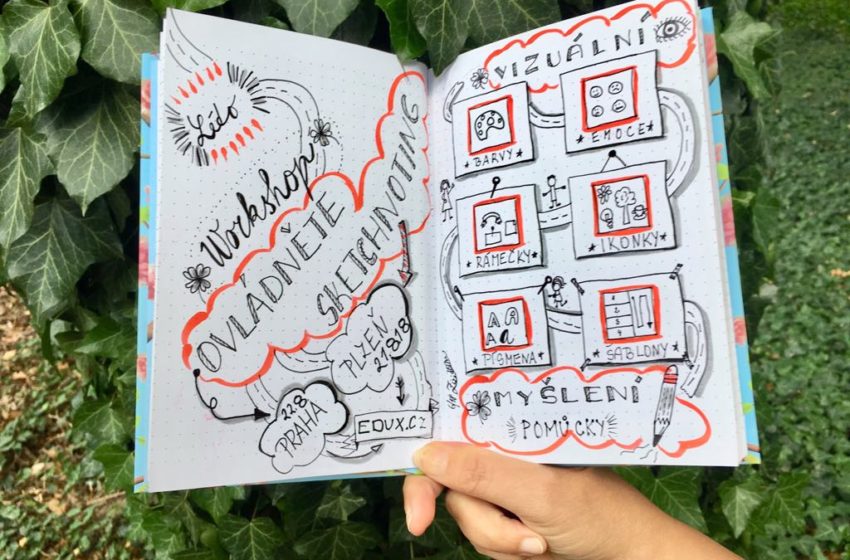 Lído
Workshop
OVLÁDNĚTE
SKETCHNOTING
PLZEŇ
21818
22.8
PRAHA
EDUX.CZ
VIZUÁLNÍ
BARVY
EMOCE
RÁMEČKY
IKONKY
A A
A a
PÍSMENA
1
2
3
4
ŠABLONY
MYŠLENÍ
POMŮCKY